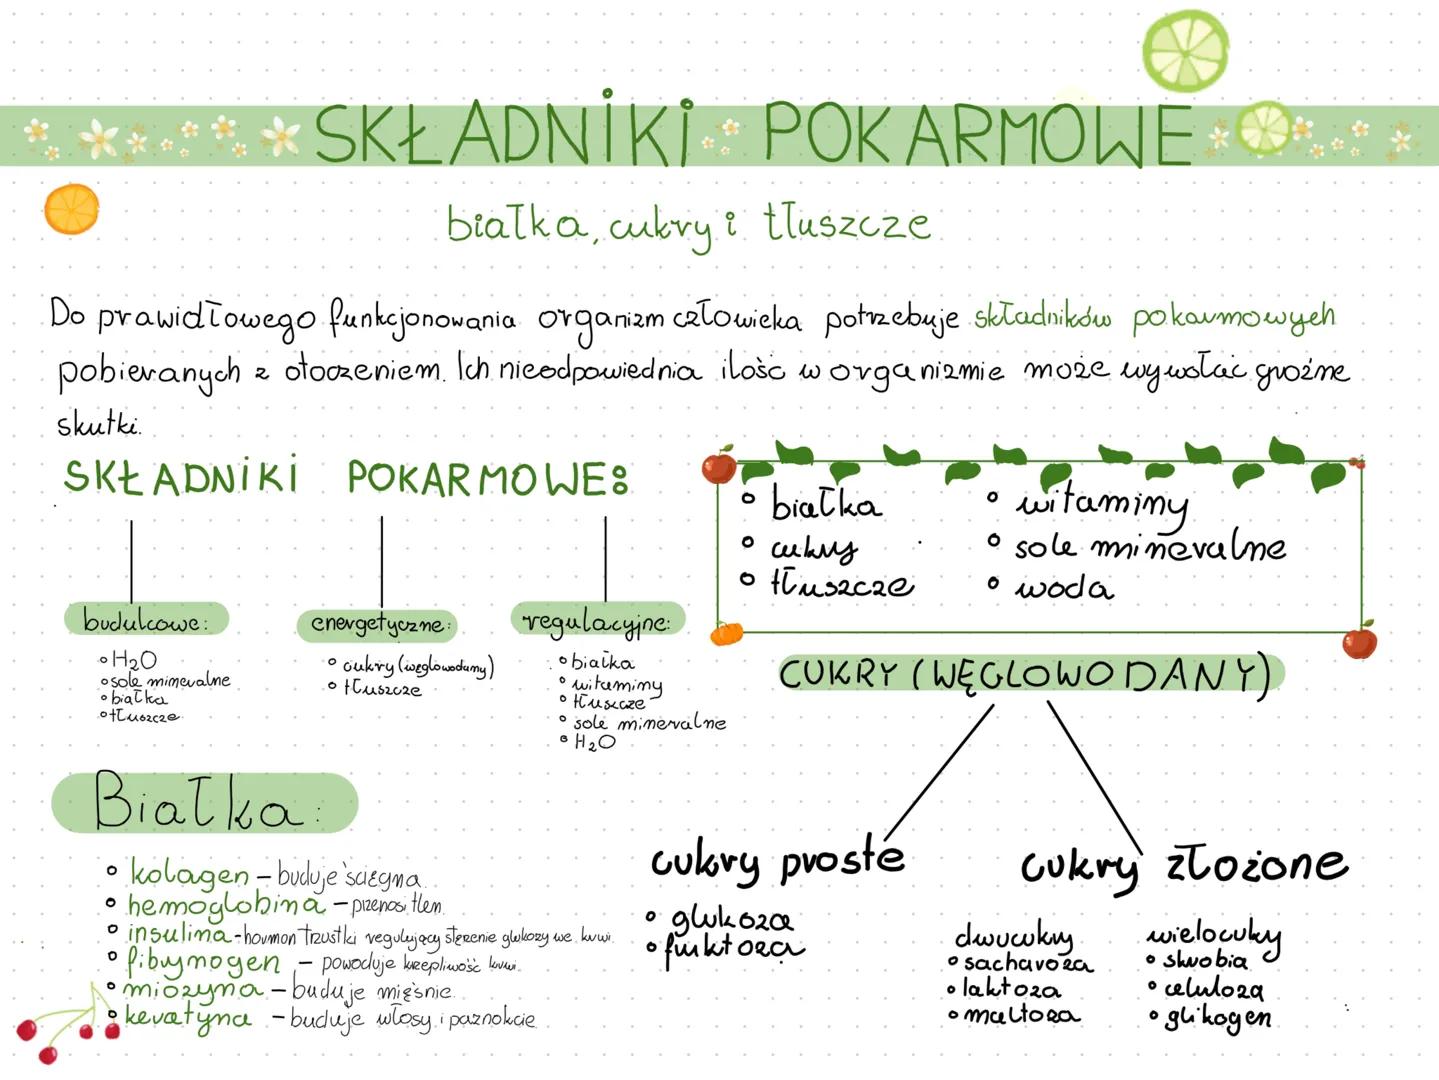 SKŁADNIKI POKARMOWE
białka, cukry i tłuszcze
Do prawidłowego funkcjonowania organizm człowieka potrzebuje składników pokarmowych
pobieranych z otoczeniem. Ich nieodpowiednia ilość w organizmie może wywołać groźne
skutki.
SKŁADNIKI POKARMOWE:
budulcowe:
• H₂O
• sole mineralne
• białka
• tłuszcze
energetyczne:
• cukry (węglowodany)
• tłuszcze
regulacyjne:
• białka
• witaminy
• tłuszcze
• sole mineralne
• H₂O
• białka
• cukry
• tłuszcze
• witaminy
• sole mineralne
• woda
Białka:
• kolagen – buduje ścięgna
• hemoglobina – przenosi tlen
• insulina - hormon trzustki regulujący stężenie glukozy we krwi
• fibrynogen – powoduje krzepliwość krwi
• miozyna – buduje mięśnie
• keratyna – buduje włosy i paznokcie
CUKRY (WĘGLOWODANY)
cukry proste
• glukoza
• fruktoza
cukry złożone
dwucukry
• sacharoza
• laktoza
• maltoza
wielocukry
• skrobia
• celuloza
• glikogen